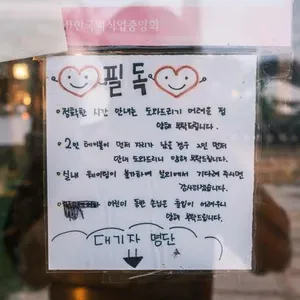 한국외식업중앙회
필독
• 정확한 시간 안내는 도와드리기 어려운 점
양해 부탁드립니다.
• 2인 테이블이 먼저 자리가 났을 경우 2인 먼저
안내 도와드리니 양해 부탁드립니다.
• 실내 웨이팅이 불가하여 밖에서 기다려 주시면
감사하겠습니다.
• 어린이 동반 손님은 출입이 어려우니
양해 부탁드립니다.
대기자 명단